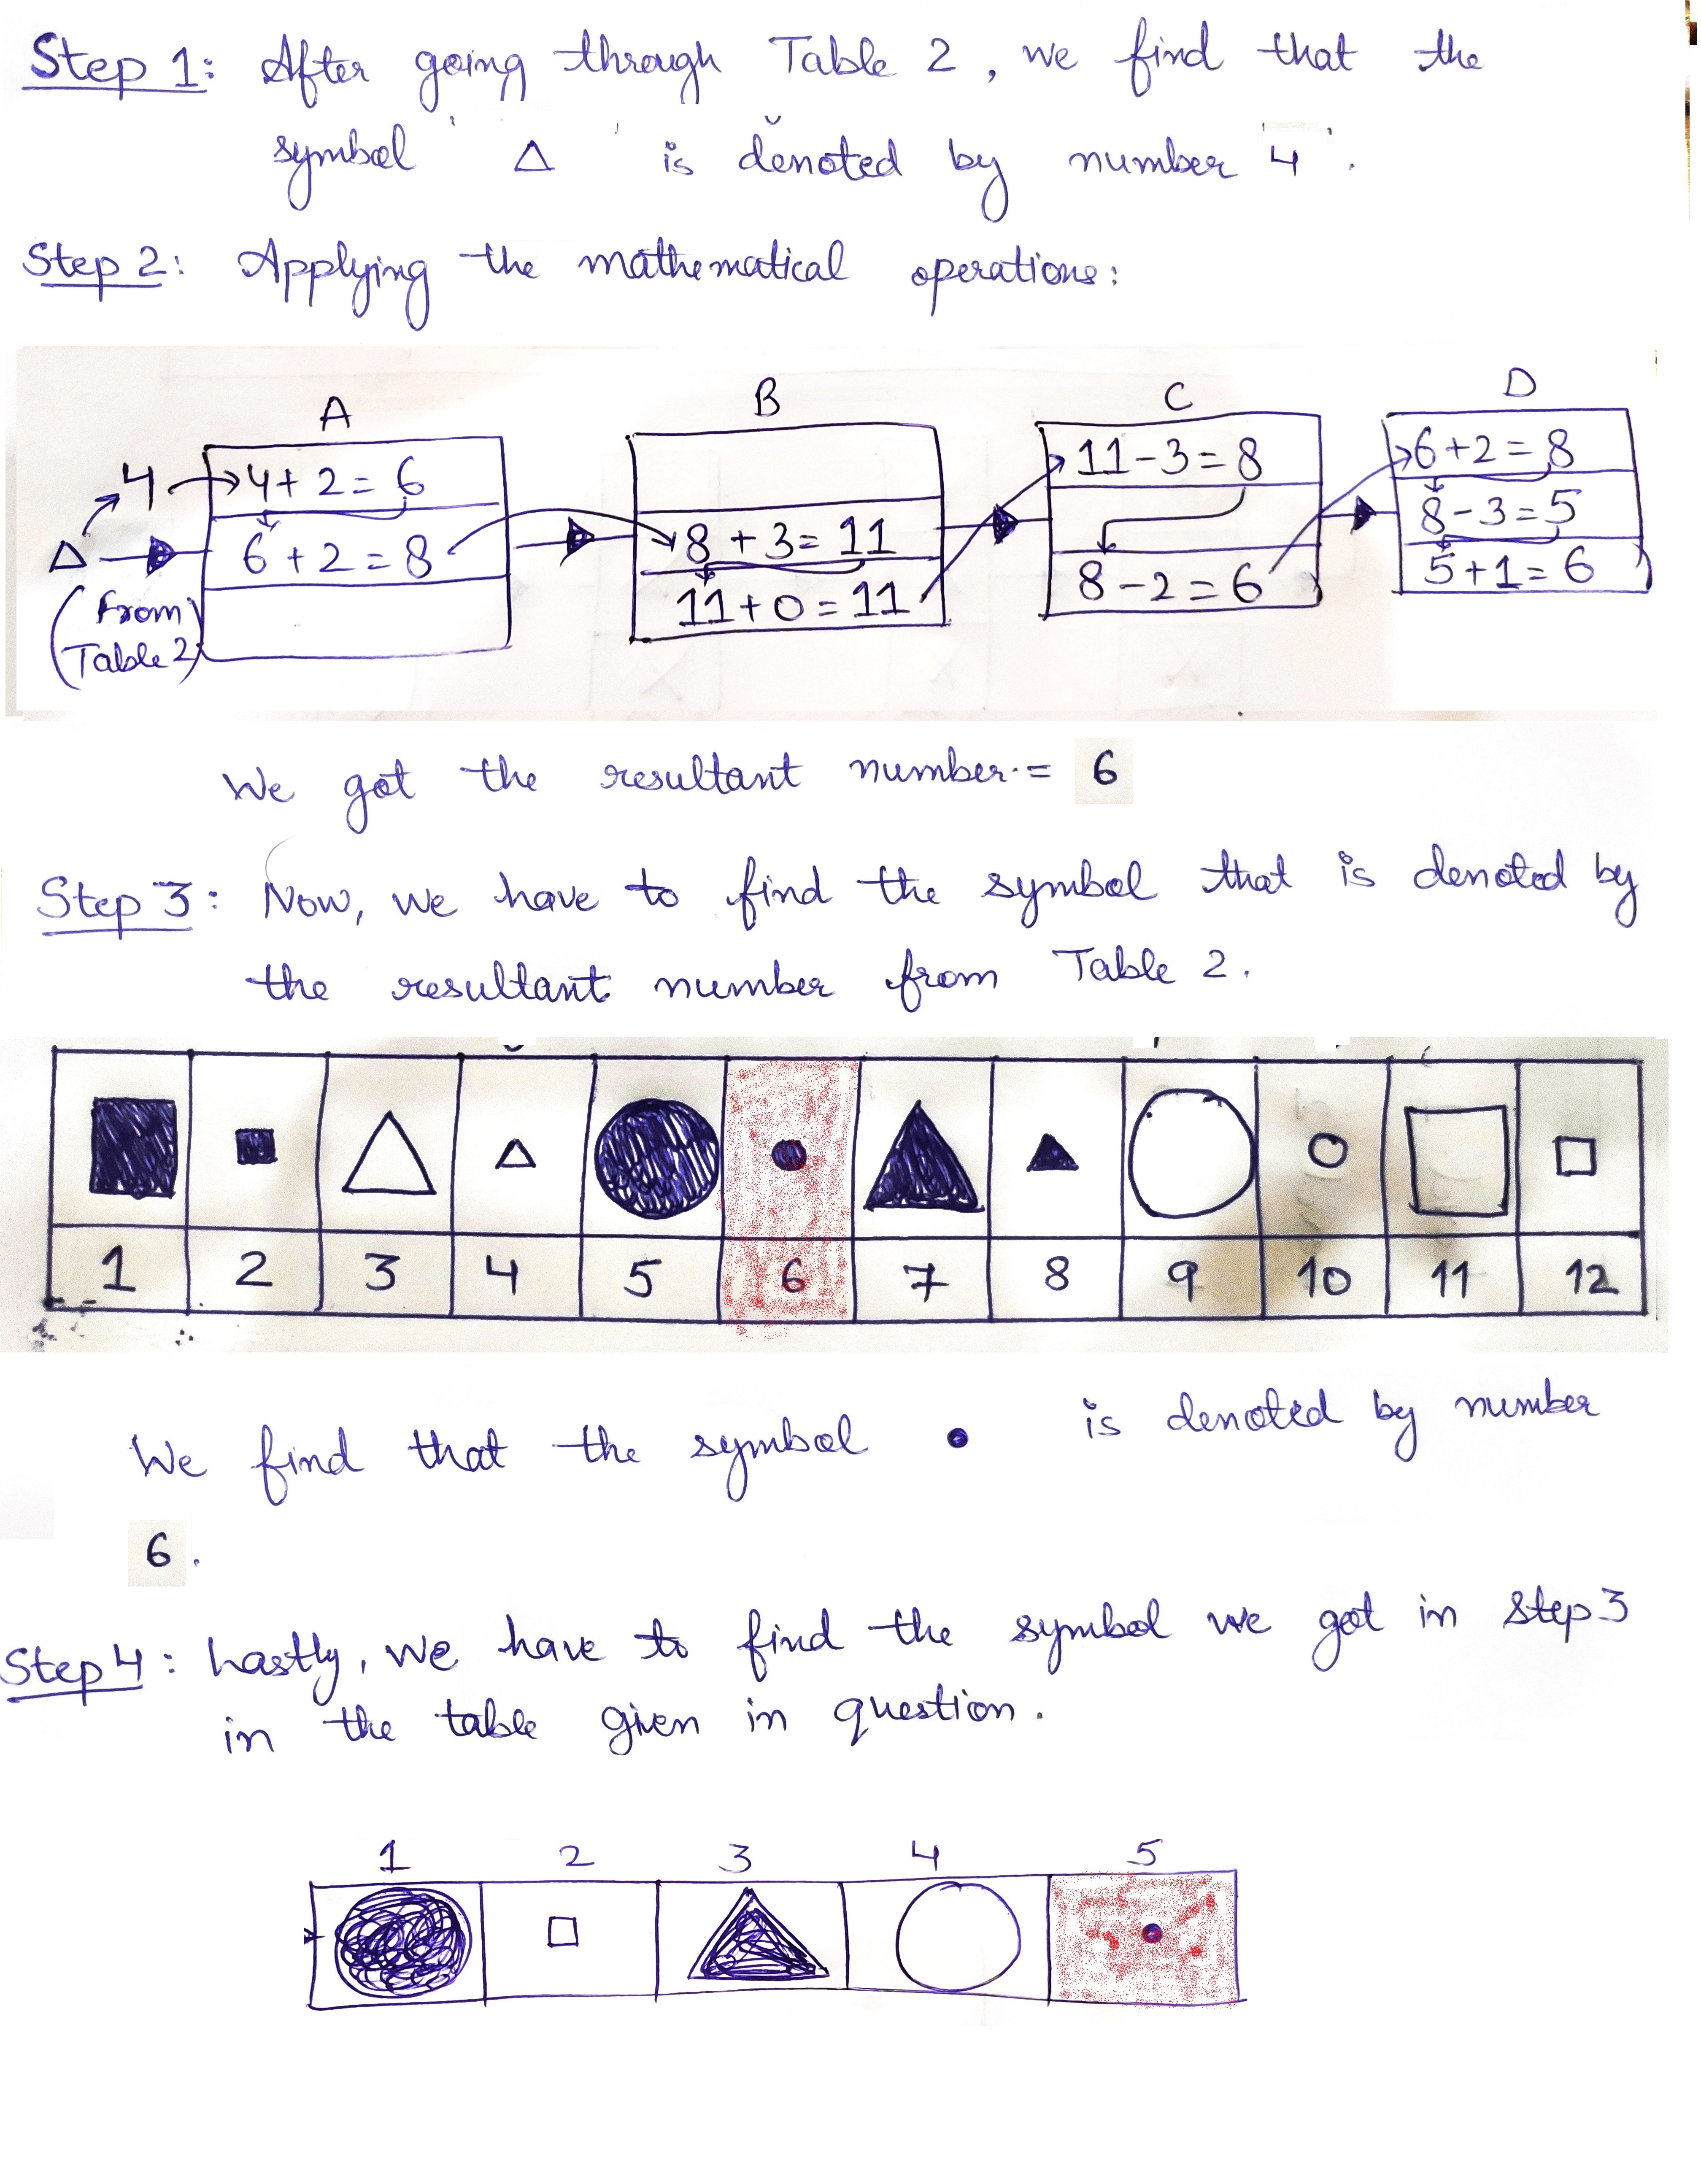 Step 1: After going through Table 2, we find that the
symbol ' △ ' is denoted by number '4'.
Step 2: Applying the mathematical operations:
A B C D
4 4 + 2 = 6 11 - 3 = 8 6 + 2 = 8
△ 6 + 2 = 8 8 + 3 = 11 8 - 3 = 5
(From 11 + 0 = 11 8 - 2 = 6 5 + 1 = 6
Table 2)
We got the resultant number = 6
Step 3: Now, we have to find the symbol that is denoted by
the resultant number from Table 2.
1 2 3 4 5 6 7 8 9 10 11 12
We find that the symbol ● is denoted by number
6.
Step 4: Lastly, we have to find the symbol we got in step 3
in the table given in question.
1 2 3 4 5